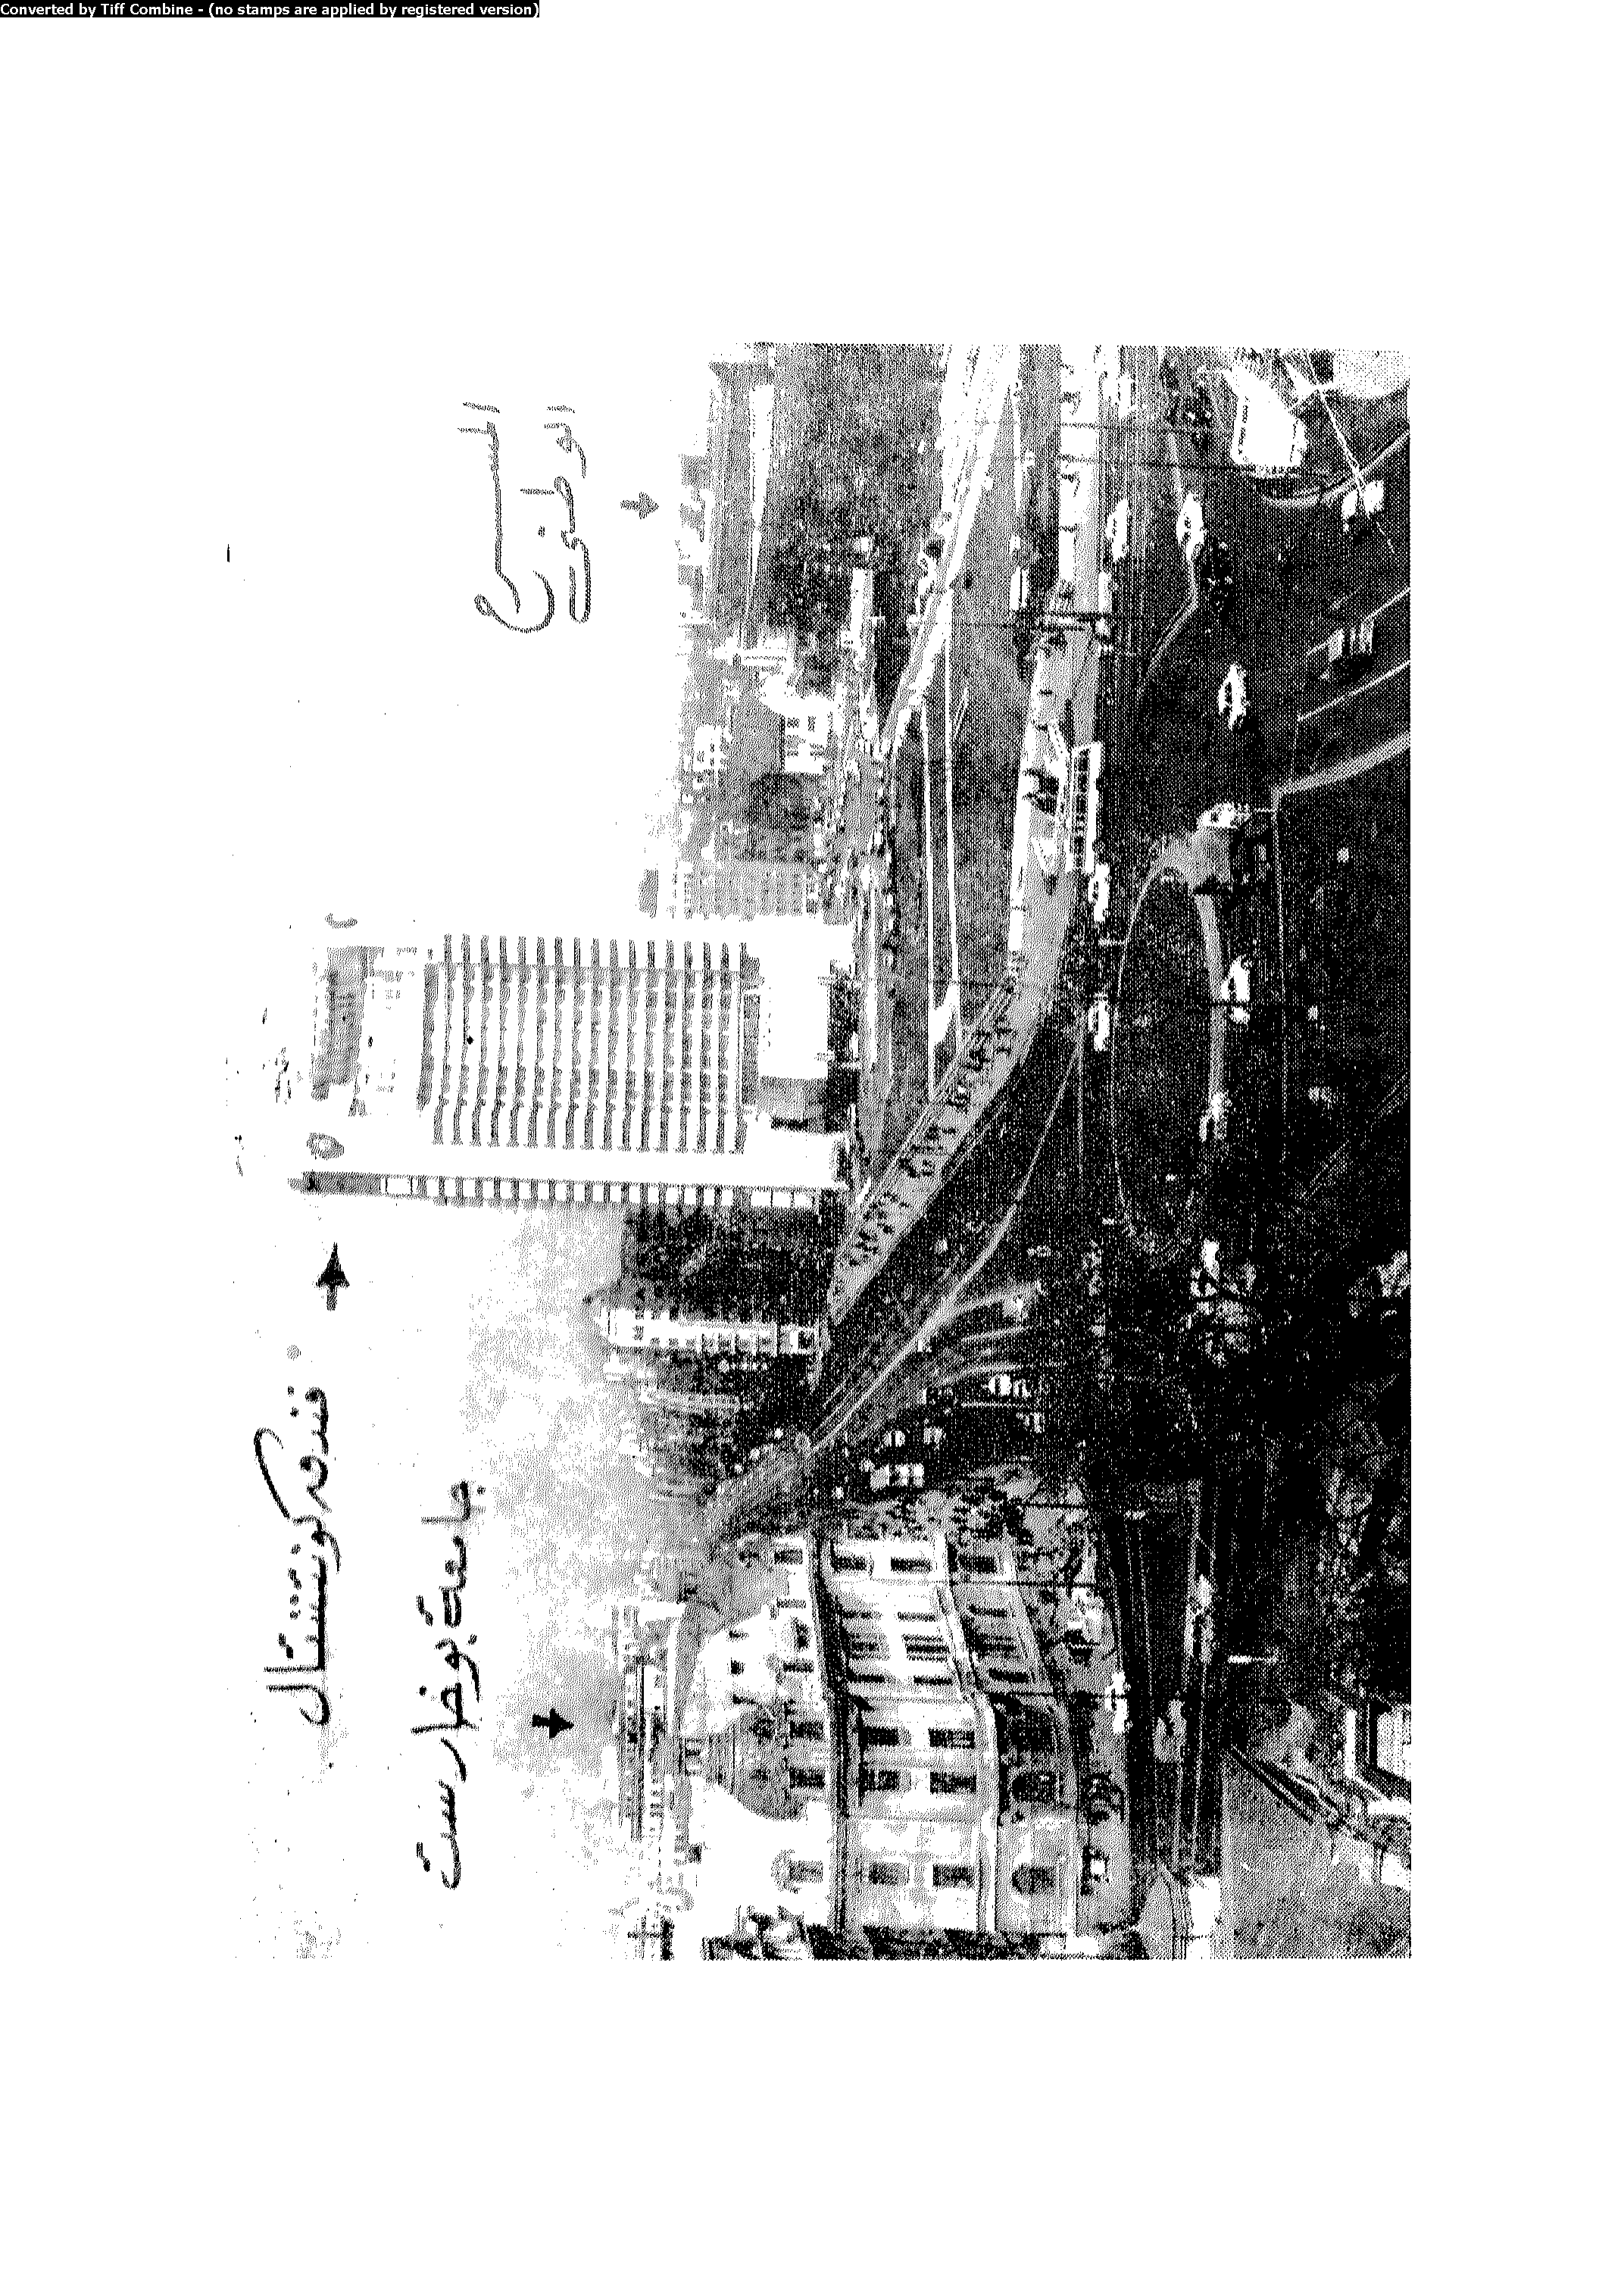 Converted by Tiff Combine - (no stamps are applied by registered version)
فندق كونتننتال
جامعة بوخارست
المسرح
الوطني